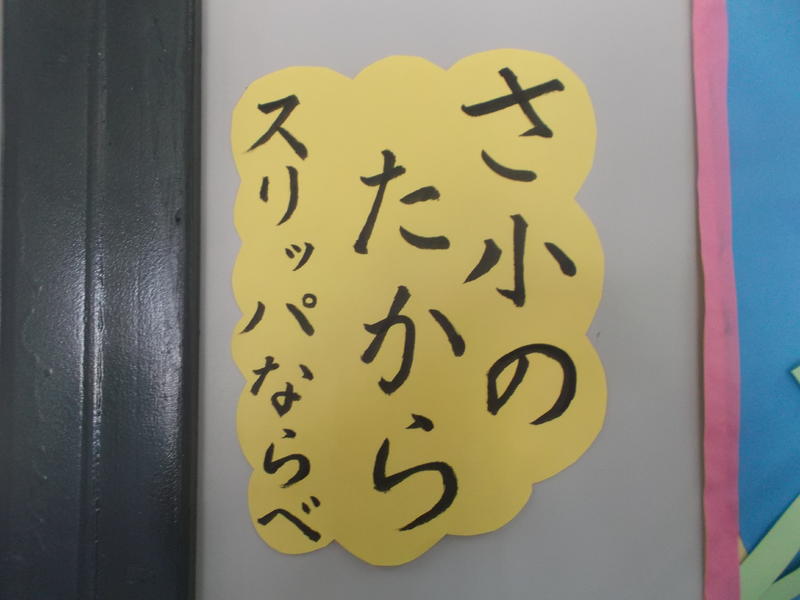 さ小の
たから
スリッパならべ